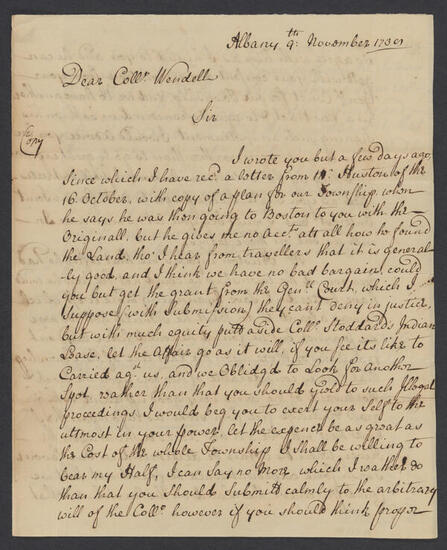 Albany 9th: November 1739
Dear Collr. Wendell
Sir
Copy
I wrote you but a few days ago,
Since which I have recd. a letter from Mr: Huston of the
16 October, with copy of a plan for our Township when
he says he was then going to Boston to you with the
Originall, but he gives me no Acct. att all how he found
the Land, tho' I hear from travellers that it is general-
ly good, and I think we have no bad bargain, could
you but get the grant from the Genll. Court, which I
Suppose (with Submission) they cant deny in justice,
but with much equity putt aside Collo. Stoddards Indian
Lease, let the Affair go as it will, if you see its like to
Carried agst. us, and we Obligd to Look for Another
Spot, rather than that you should yield to such Illegal
proceedings, I would beg you to exert your Self to the
uttmost in your power, let the expence be as great as
the Cost of the whole Township I shall be willing to
bear my Half, I can say no More, which I rather do
than that you Should Submitt calmly to the arbitrary
will of the Collo. however if you should think proper